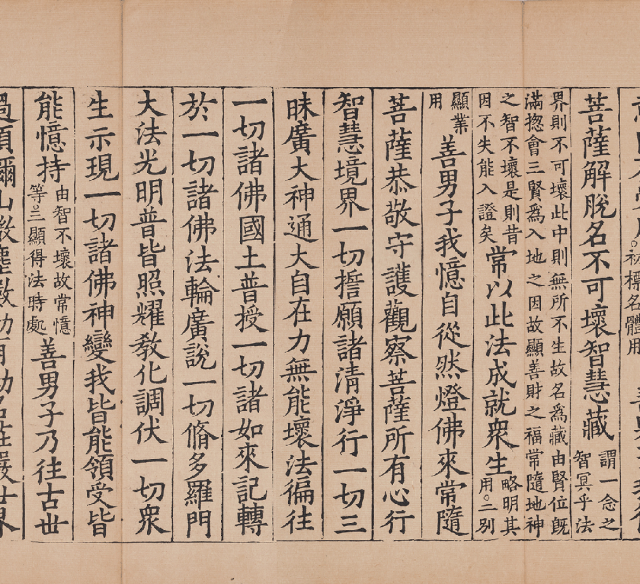 初標名體用
菩薩解脫名不可壞智慧藏謂一念之
智冥乎法
界則不可壞此中則無所不生故名為藏由賢位旣
滿揔會三賢為入地之因故顯善財之福常隨地神
之智不壞是則昔
因不失能入證矣常以此法成就衆生略明其
用○二別
顯業
用善男子我憶自從然燈佛來常隨
菩薩恭敬守護觀察菩薩所有心行
智慧境界一切誓願諸清淨行一切三
昧廣大神通大自在力無能壞法徧往
一切諸佛國土普授一切諸如來記轉
於一切諸佛法輪廣說一切脩多羅門
大法光明普皆照耀教化調伏一切衆
生示現一切諸佛神變我皆能領受皆
能憶持由智不壞故常憶
等○三顯得法時處善男子乃往古世
過須彌山微塵數劫有劫名莊嚴世界